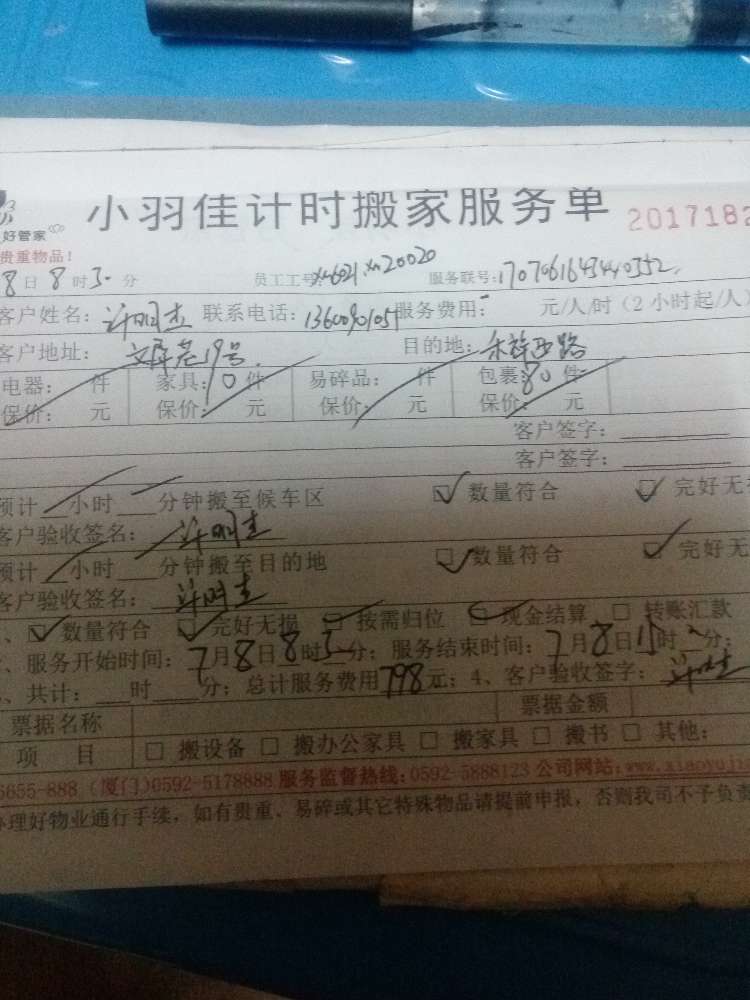 小羽佳计时搬家服务单 2017182
好管家
贵重物品!
8日8时30分 员工工号:xm6021.xm20020 服务联号:1707061643440352
客户姓名:许明杰 联系电话:13600901051 服务费用: 元/人/时(2小时起/人)
客户地址: 19号 目的地:禾祥西路
电器: 件 家具:10件 易碎品: 件 包裹:80件
保价: 元 保价: 元 保价: 元 保价: 元
客户签字:
客户签字:
预计 小时 分钟搬至候车区 数量符合 完好无
客户验收签名:许明杰
预计 小时 分钟搬至目的地 数量符合 完好无
客户验收签名:许明杰
、数量符合 完好无损 按需归位 现金结算 转账汇款
、服务开始时间:7月8日8时 分;服务结束时间:7月8日15时 分;
、共计: 时 分;总计服务费用798元;4、客户验收签字:许明杰
票据名称 票据金额
项 目 搬设备 搬办公家具 搬家具 搬书 其他:
6655-888 (厦门)0592-5178888 服务监督热线:0592-5888123 公司网站:www.xiaoyuj
办理好物业通行手续,如有贵重、易碎或其它特殊物品请提前申报,否则我司不予负责